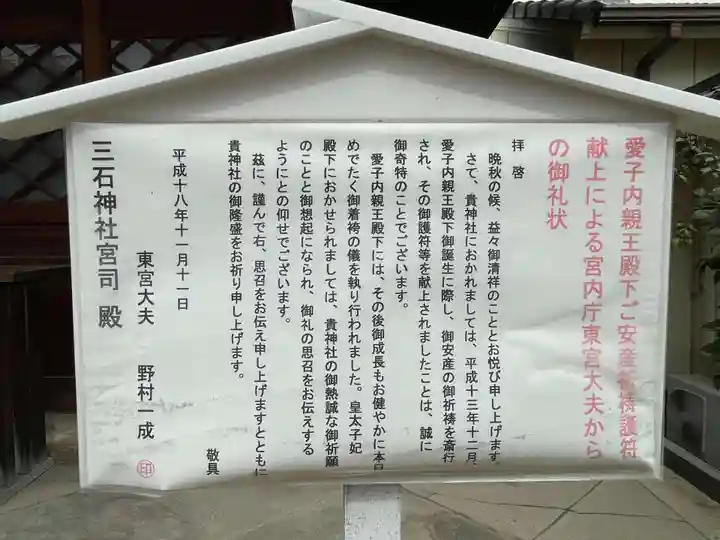 愛子内親王殿下ご安産祈祷護符
献上による宮内庁東宮大夫から
の御礼状
拝啓
晩秋の候、益々御清祥のこととお悦び申し上げます。
さて、貴神社におかれましては、平成十三年十二月、
愛子内親王殿下御誕生に際し、御安産の御祈祷を斎行
され、その御護符等を献上されましたことは、誠に
御奇特のことでございます。
愛子内親王殿下には、その後御成長もお健やかに本日
めでたく御着袴の儀を執り行われました。皇太子妃
殿下におかせられましては、貴神社の御熱誠な御祈願
のことと御想起になられ、御礼の思召をお伝えする
ようにとの仰せでございます。
茲に、謹んで右、思召をお伝え申し上げますとともに
貴神社の御隆盛をお祈り申し上げます。
敬具
平成十八年十一月十一日
東宮大夫 野村一成 印
三石神社宮司 殿